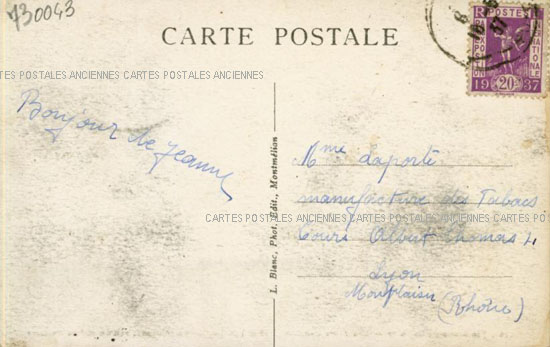 730043
CARTE POSTALE
RF POSTES
EXPOSITION
INTERNATIONALE
20
1937
CARTES POSTALES ANCIENNES CARTES POSTALES ANCIENNES
Bonjour de Jeanne
L. Blanc, Phot. Edit., Montmélian
Mme Laporte
manufacture des Tabacs
CARTES POSTALES ANCIENNES CARTES POSTALES ANCIENNES
Cours Albert Thomas
Lyon
Monplaisir (Rhône)